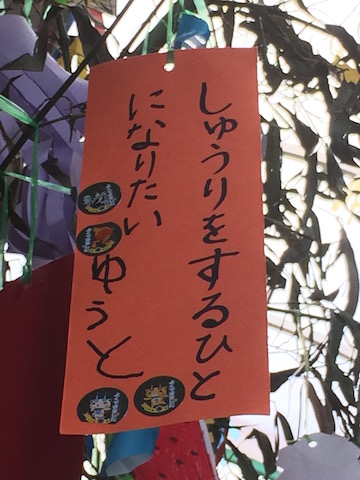 しゅうりをするひと
になりたい
ゆうと